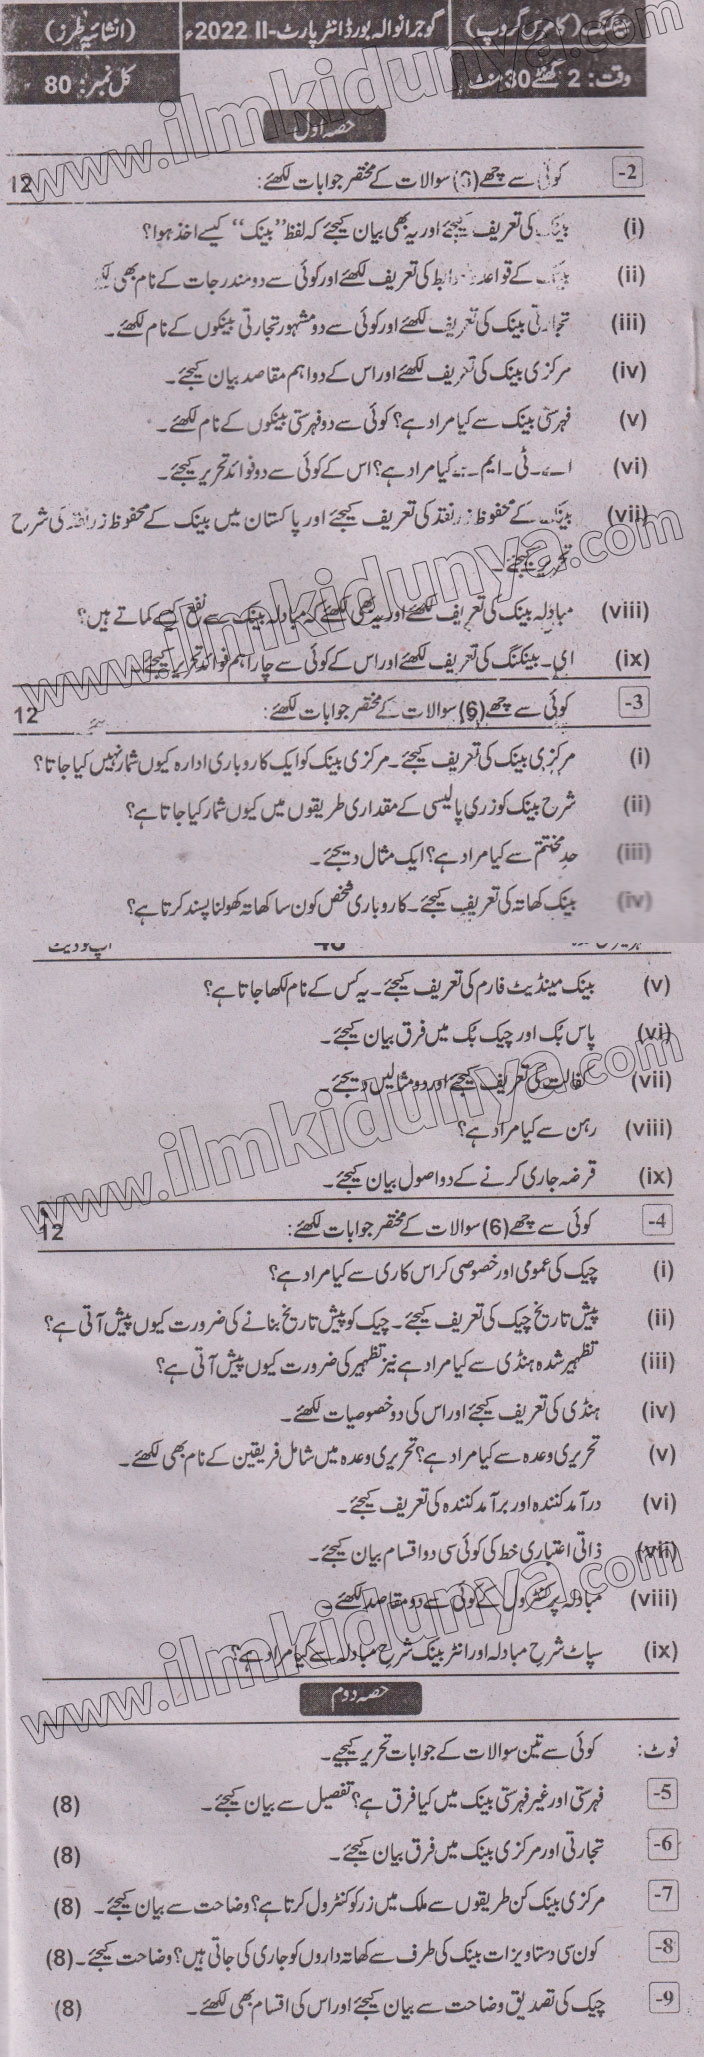 بینکنگ (کامرس گروپ) گوجرانوالہ بورڈ انٹر پارٹ-II 2022ء (انشائیہ طرز)
وقت: 2 گھنٹے 30 منٹ کل نمبر: 80
حصہ اول
2- کوئی سے چھے (6) سوالات کے مختصر جوابات لکھئے: 12
(i) بینک کی تعریف کیجئے اور یہ بھی بیان کیجئے کہ لفظ "بینک" کیسے اخذ ہوا؟
(ii) بینک کے قواعد و ضوابط کی تعریف لکھئے اور کوئی سے دو مندرجات کے نام بھی
(iii) تجارتی بینک کی تعریف لکھئے اور کوئی سے دو مشہور تجارتی بینکوں کے نام لکھئے۔
(iv) مرکزی بینک کی تعریف لکھئے اور اس کے دو اہم مقاصد بیان کیجئے۔
(v) فہرستی بینک سے کیا مراد ہے؟ کوئی سے دو فہرستی بینکوں کے نام لکھئے۔
(vi) اے۔ٹی۔ایم۔ سے کیا مراد ہے؟ اس کے کوئی سے دو فوائد تحریر کیجئے۔
(vii) بینک کے محفوظ زرنقد کی تعریف کیجئے اور پاکستان میں بینک کے محفوظ زرنقد کی شرح
تحریر کیجئے۔
(viii) مبادلہ بینک کی تعریف لکھئے اور یہ بھی لکھئے کہ مبادلہ بینک سے نفع کیسے کماتے ہیں؟
(ix) ای۔بینکنگ کی تعریف لکھئے اور اس کے کوئی سے چار اہم فوائد تحریر کیجئے۔
3- کوئی سے چھے (6) سوالات کے مختصر جوابات لکھئے: 12
(i) مرکزی بینک کی تعریف کیجئے۔ مرکزی بینک کو ایک کاروباری ادارہ کیوں شمار نہیں کیا جاتا؟
(ii) شرح بینک کو زری پالیسی کے مقداری طریقوں میں کیوں شمار کیا جاتا ہے؟
(iii) حدِ مختتم سے کیا مراد ہے؟ ایک مثال دیجئے۔
(iv) بینک کھاتہ کی تعریف کیجئے۔ کاروباری شخص کون سا کھاتہ کھولنا پسند کرتا ہے؟
(v) بینک مینڈیٹ فارم کی تعریف کیجئے۔ یہ کس کے نام لکھا جاتا ہے؟
(vi) پاس بُک اور چیک بُک میں فرق بیان کیجئے۔
(vii) کفالت کی تعریف کیجئے اور دو مثالیں دیجئے۔
(viii) رہن سے کیا مراد ہے؟
(ix) قرضہ جاری کرنے کے دو اصول بیان کیجئے۔
4- کوئی سے چھے (6) سوالات کے مختصر جوابات لکھئے: 12
(i) چیک کی عمومی اور خصوصی کراس کاری سے کیا مراد ہے؟
(ii) پیش تاریخ چیک کی تعریف کیجئے۔ چیک کو پیش تاریخ بنانے کی ضرورت کیوں پیش آتی ہے؟
(iii) تظہیر شدہ ہنڈی سے کیا مراد ہے نیز تظہیر کی ضرورت کیوں پیش آتی ہے؟
(iv) ہنڈی کی تعریف کیجئے اور اس کی دو خصوصیات لکھئے۔
(v) تحریری وعدہ سے کیا مراد ہے؟ تحریری وعدہ میں شامل فریقین کے نام بھی لکھئے۔
(vi) درآمد کنندہ اور برآمد کنندہ کی تعریف کیجئے۔
(vii) ذاتی اعتباری خط کی کوئی سی دو اقسام بیان کیجئے۔
(viii) مبادلہ پر کنٹرول کے کوئی سے دو مقاصد لکھئے۔
(ix) سپاٹ شرح مبادلہ اور انٹر بینک شرح مبادلہ سے کیا مراد ہے؟
حصہ دوم
نوٹ: کوئی سے تین سوالات کے جوابات تحریر کیجیے۔
5- فہرستی اور غیر فہرستی بینک میں کیا فرق ہے؟ تفصیل سے بیان کیجئے۔ (8)
6- تجارتی اور مرکزی بینک میں فرق بیان کیجئے۔ (8)
7- مرکزی بینک کن طریقوں سے ملک میں زر کو کنٹرول کرتا ہے؟ وضاحت سے بیان کیجئے۔ (8)
8- کون سی دستاویزات بینک کی طرف سے کھاتہ داروں کو جاری کی جاتی ہیں؟ وضاحت کیجئے۔ (8)
9- چیک کی تصدیق وضاحت سے بیان کیجئے اور اس کی اقسام بھی لکھئے۔ (8)
www.ilmkidunya.com
www.ilmkidunya.com
www.ilmkidunya.com
www.ilmkidunya.com